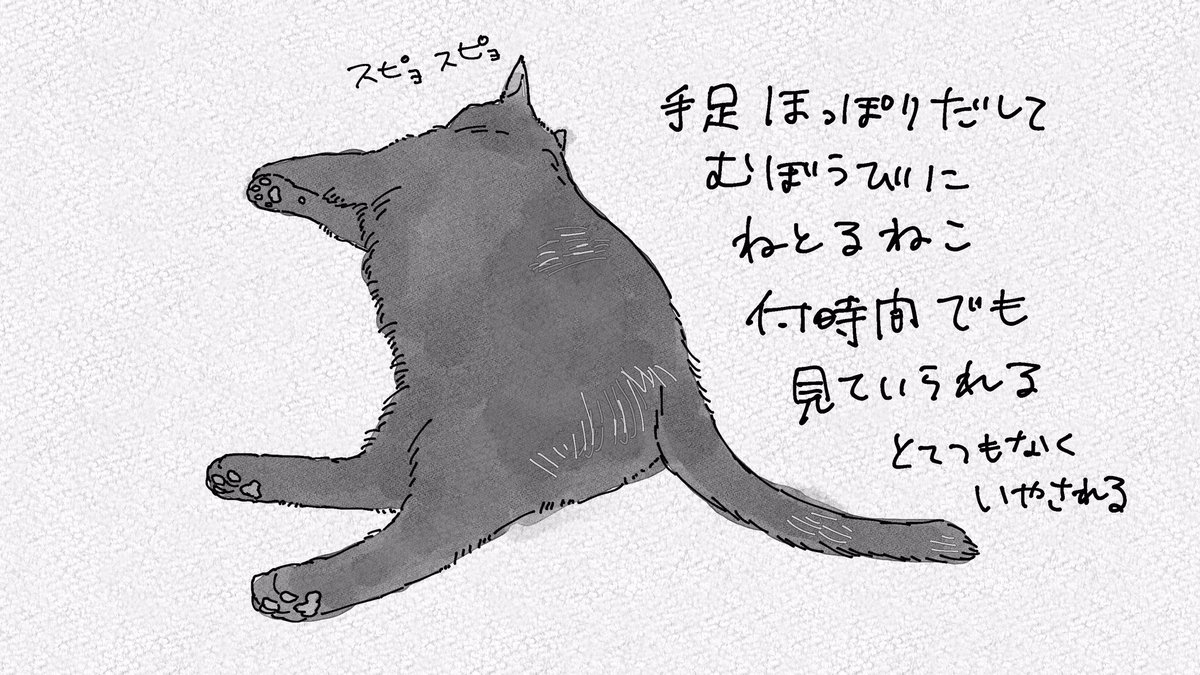 スピョ スピョ
手足ほっぽりだして
むぼうびに
ねとるねこ
何時間でも
見ていられる
とてつもなく
いやされる